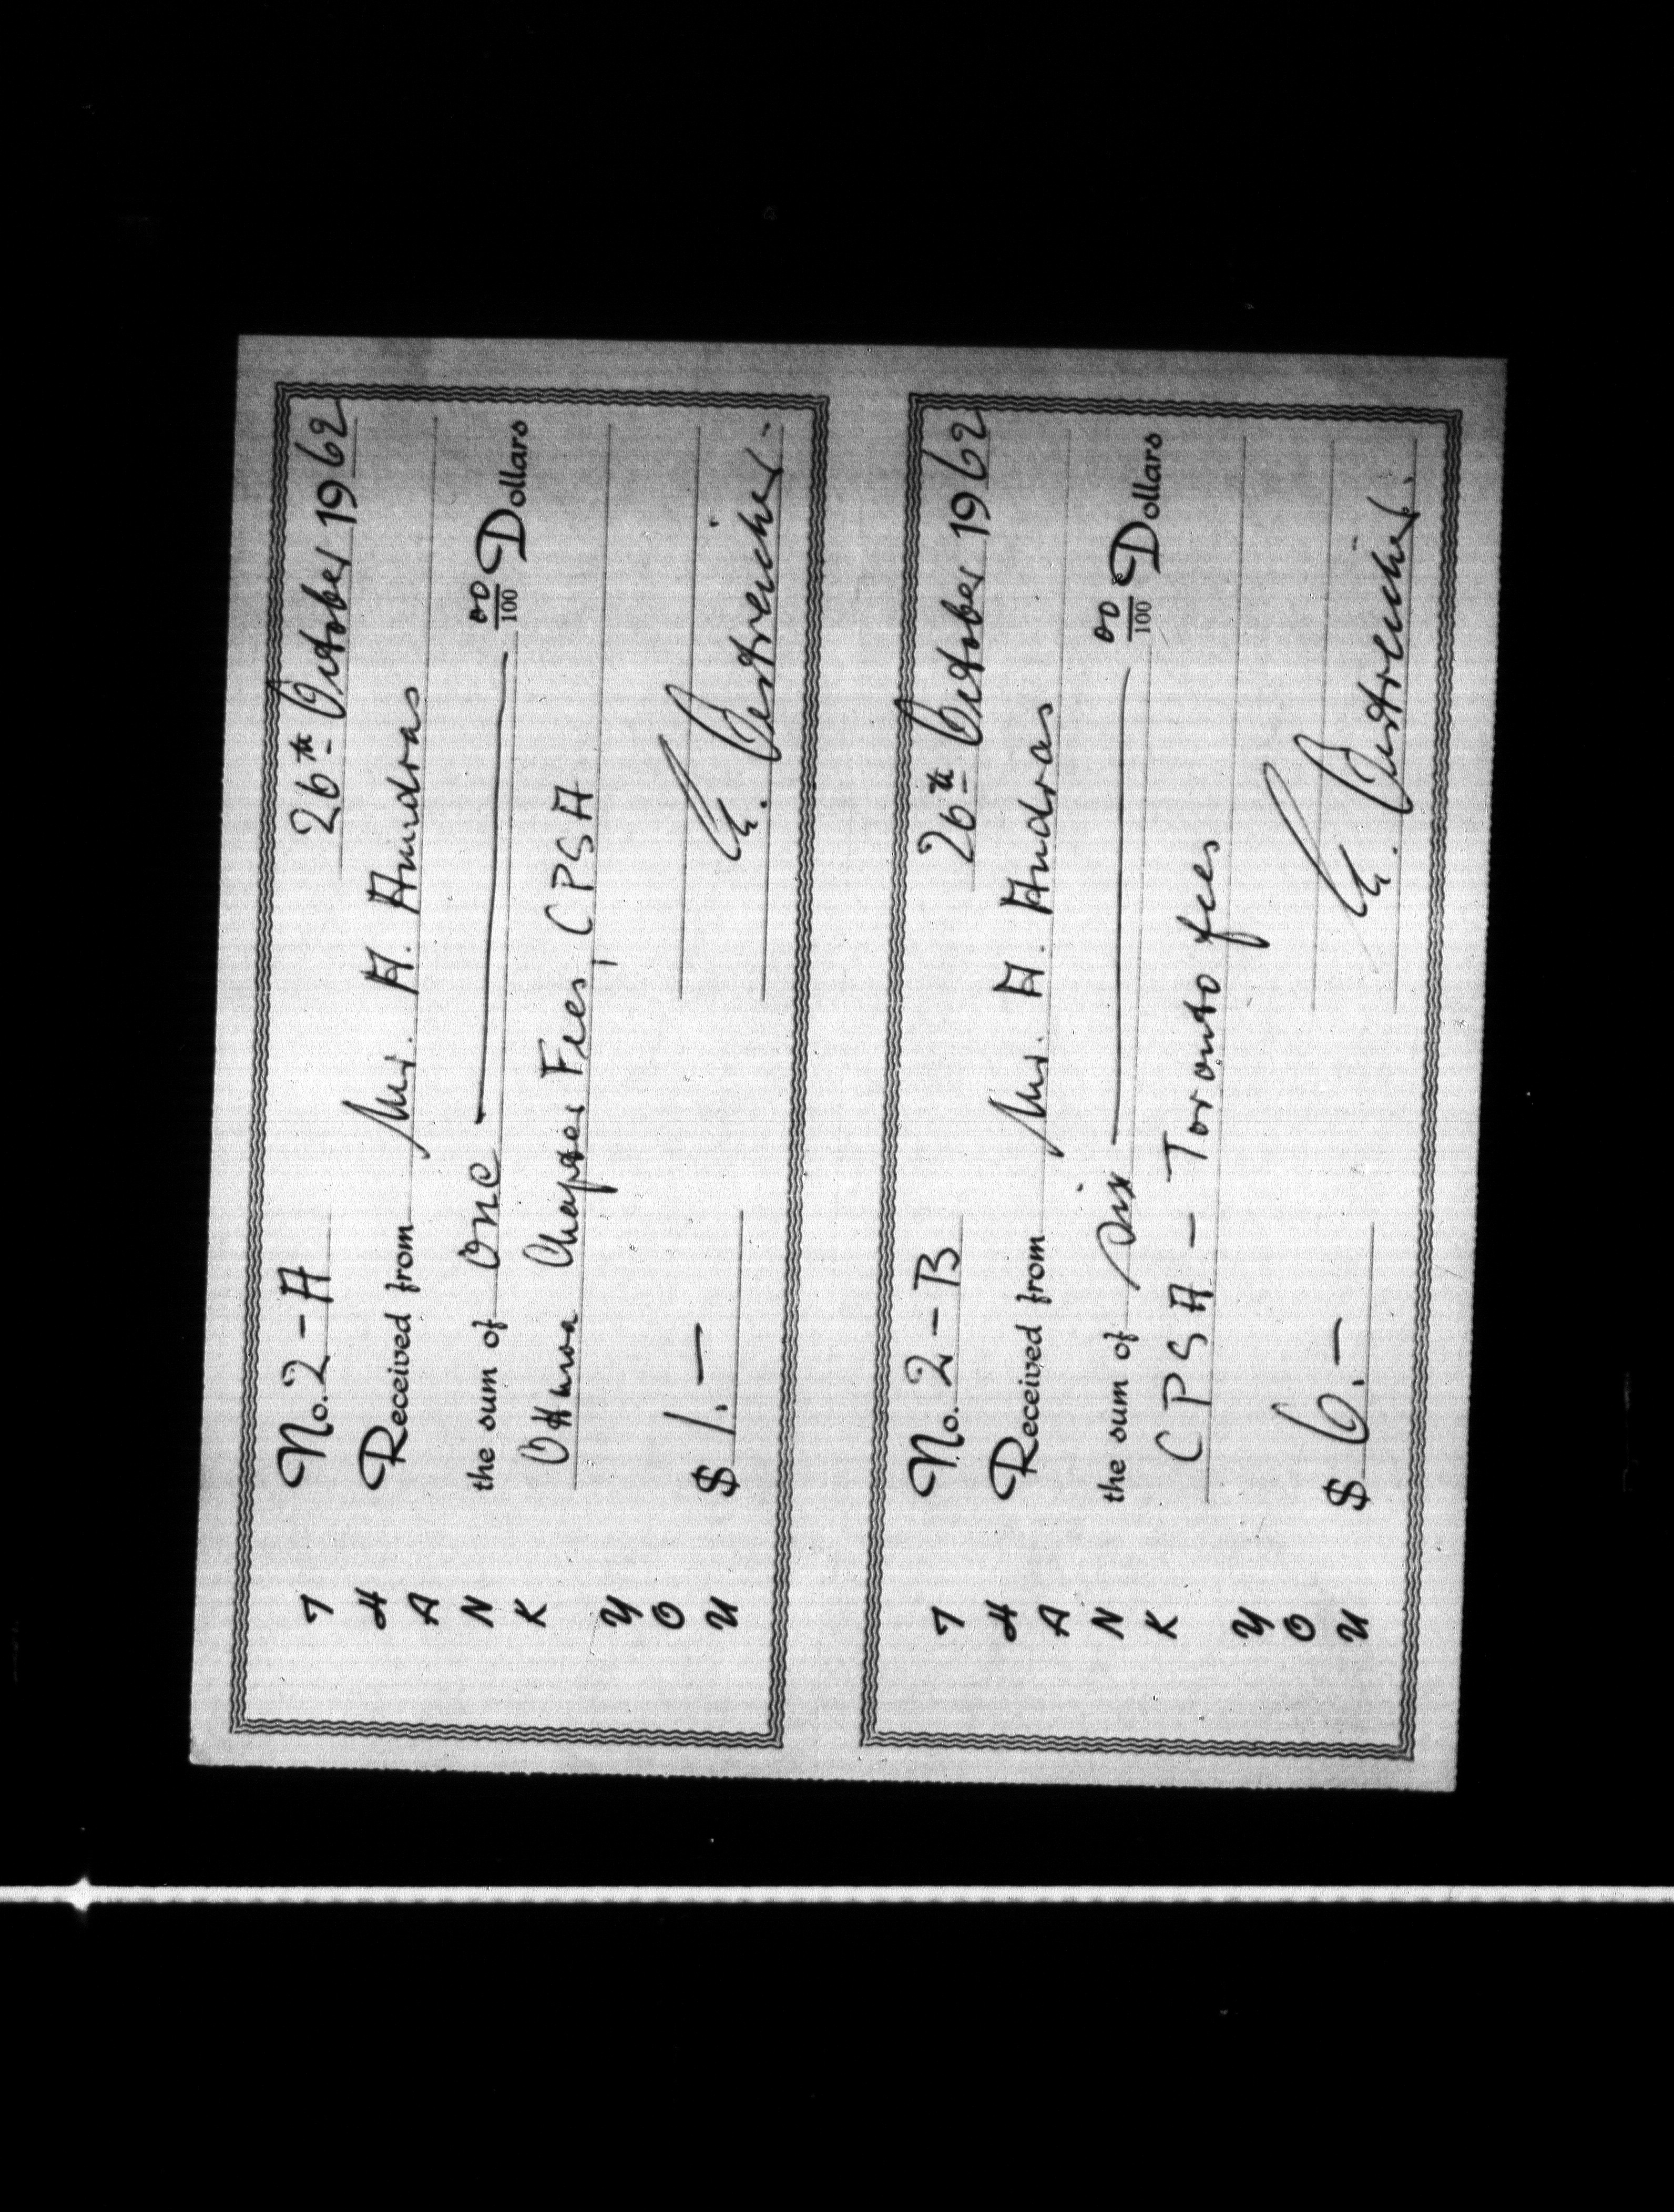 THANK YOU
No. 2-A 26th October 1962
Received from Mr. A. Andras
the sum of One 00/100 Dollars
Ottawa Chapter Fees, CPSA
$ 1.—
E. Oestreicher.
THANK YOU
No. 2-B 26th October 1962
Received from Mr. A. Andras
the sum of Six 00/100 Dollars
CPSA - Toronto fees
$ 6.—
E. Oestreicher.